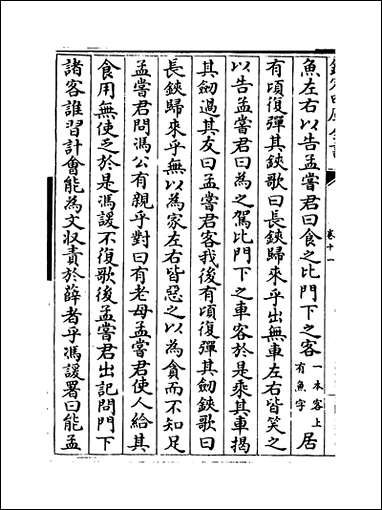 欽定四庫全書
卷十一
魚左右以告孟嘗君曰食之比門下之客一本客上有魚字居
有頃復彈其鋏歌曰長鋏歸來乎出無車左右皆笑之
以告孟嘗君曰為之駕比門下之車客於是乘其車揭
其劒過其友曰孟嘗君客我後有頃復彈其劒鋏歌曰
長鋏歸來乎無以為家左右皆惡之以為貪而不知足
孟嘗君問馮公有親乎對曰有老母孟嘗君使人給其
食用無使乏於是馮諼不復歌後孟嘗君出記問門下
諸客誰習計會能為文收責於薛者乎馮諼署曰能孟